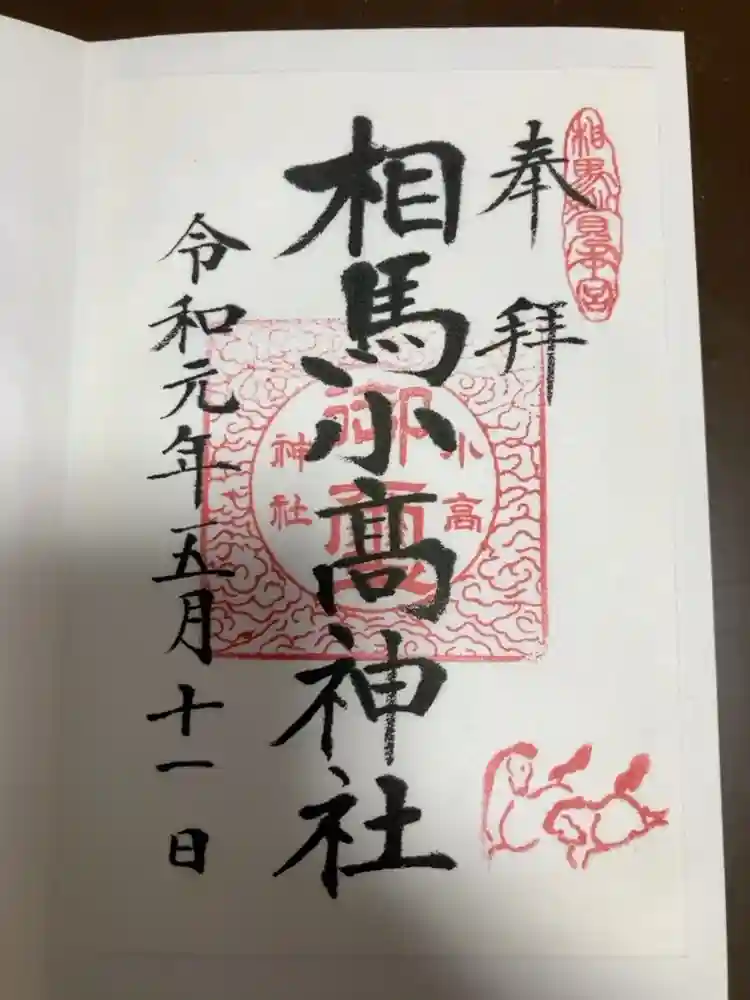 奉拝
相馬小高神社
令和元年五月十一日
小高
神社